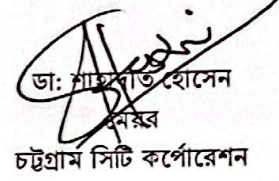 ডা: শাহাদাত হোসেন
মেয়র
চট্টগ্রাম সিটি কর্পোরেশন